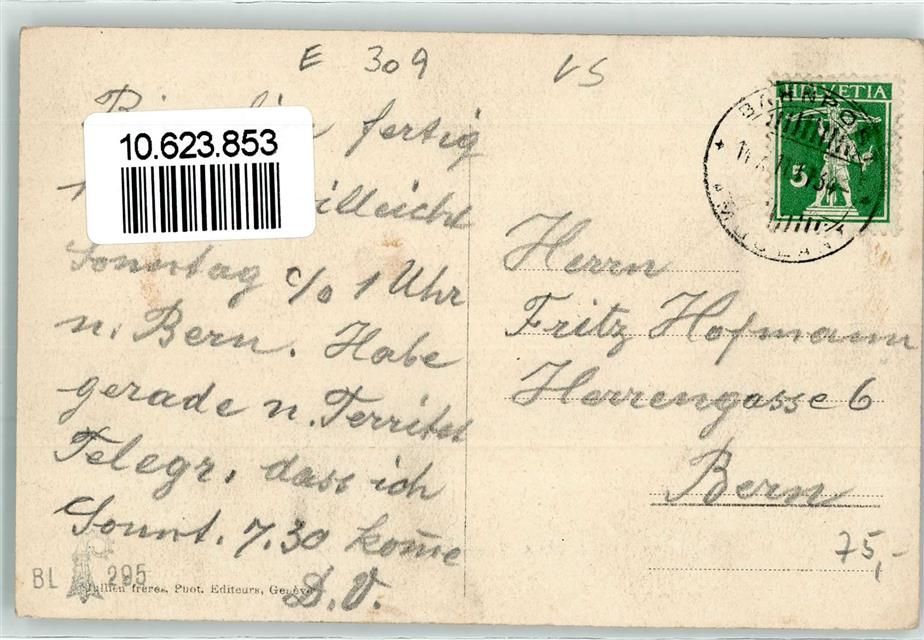 E 309
VS
10.623.853
HELVETIA
5
fertig
Sonntag c/o 1 Uhr
n. Bern. Habe
gerade n. Territet
Telegr. dass ich
Sonnt. 7.30 kome
D.V.
Herrn
Fritz Hofmann
Herrengasse 6
Bern
75,-
BL 295
Jullien frères, Phot. Editeurs, Genève